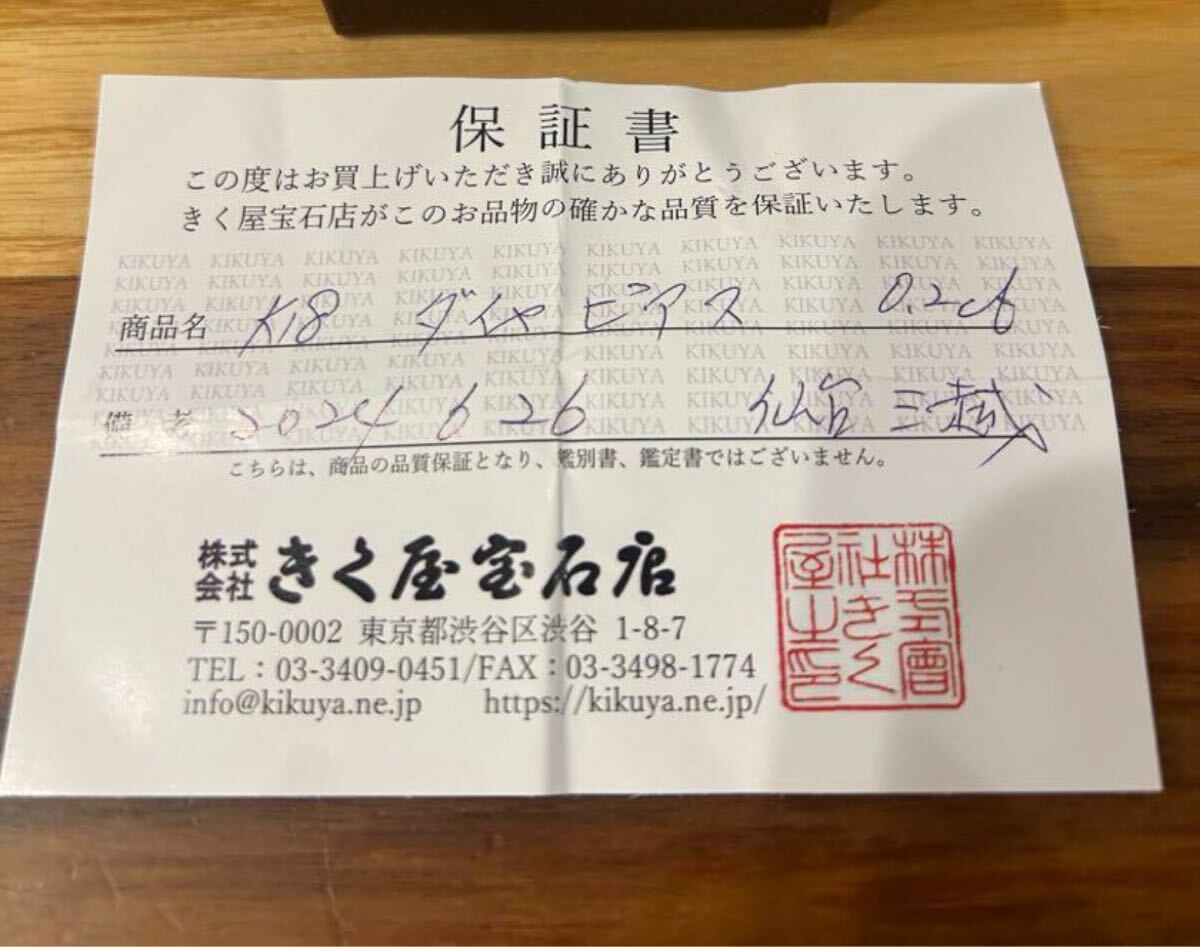 保証書
この度はお買上げいただき誠にありがとうございます。
きく屋宝石店がこのお品物の確かな品質を保証いたします。
KIKUYA KIKUYA KIKUYA KIKUYA KIKUYA KIKUYA KIKUYA KIKUYA KIKUYA KIKUYA
商品名 K18 ダイヤ ピアス 0.2ct
備考 2024 6 26 仙台三越
こちらは、商品の品質保証となり、鑑別書、鑑定書ではございません。
株式会社 きく屋宝石店
〒150-0002 東京都渋谷区渋谷 1-8-7
TEL：03-3409-0451/FAX：03-3498-1774
info@kikuya.ne.jp https://kikuya.ne.jp/
株式會社きく屋之印